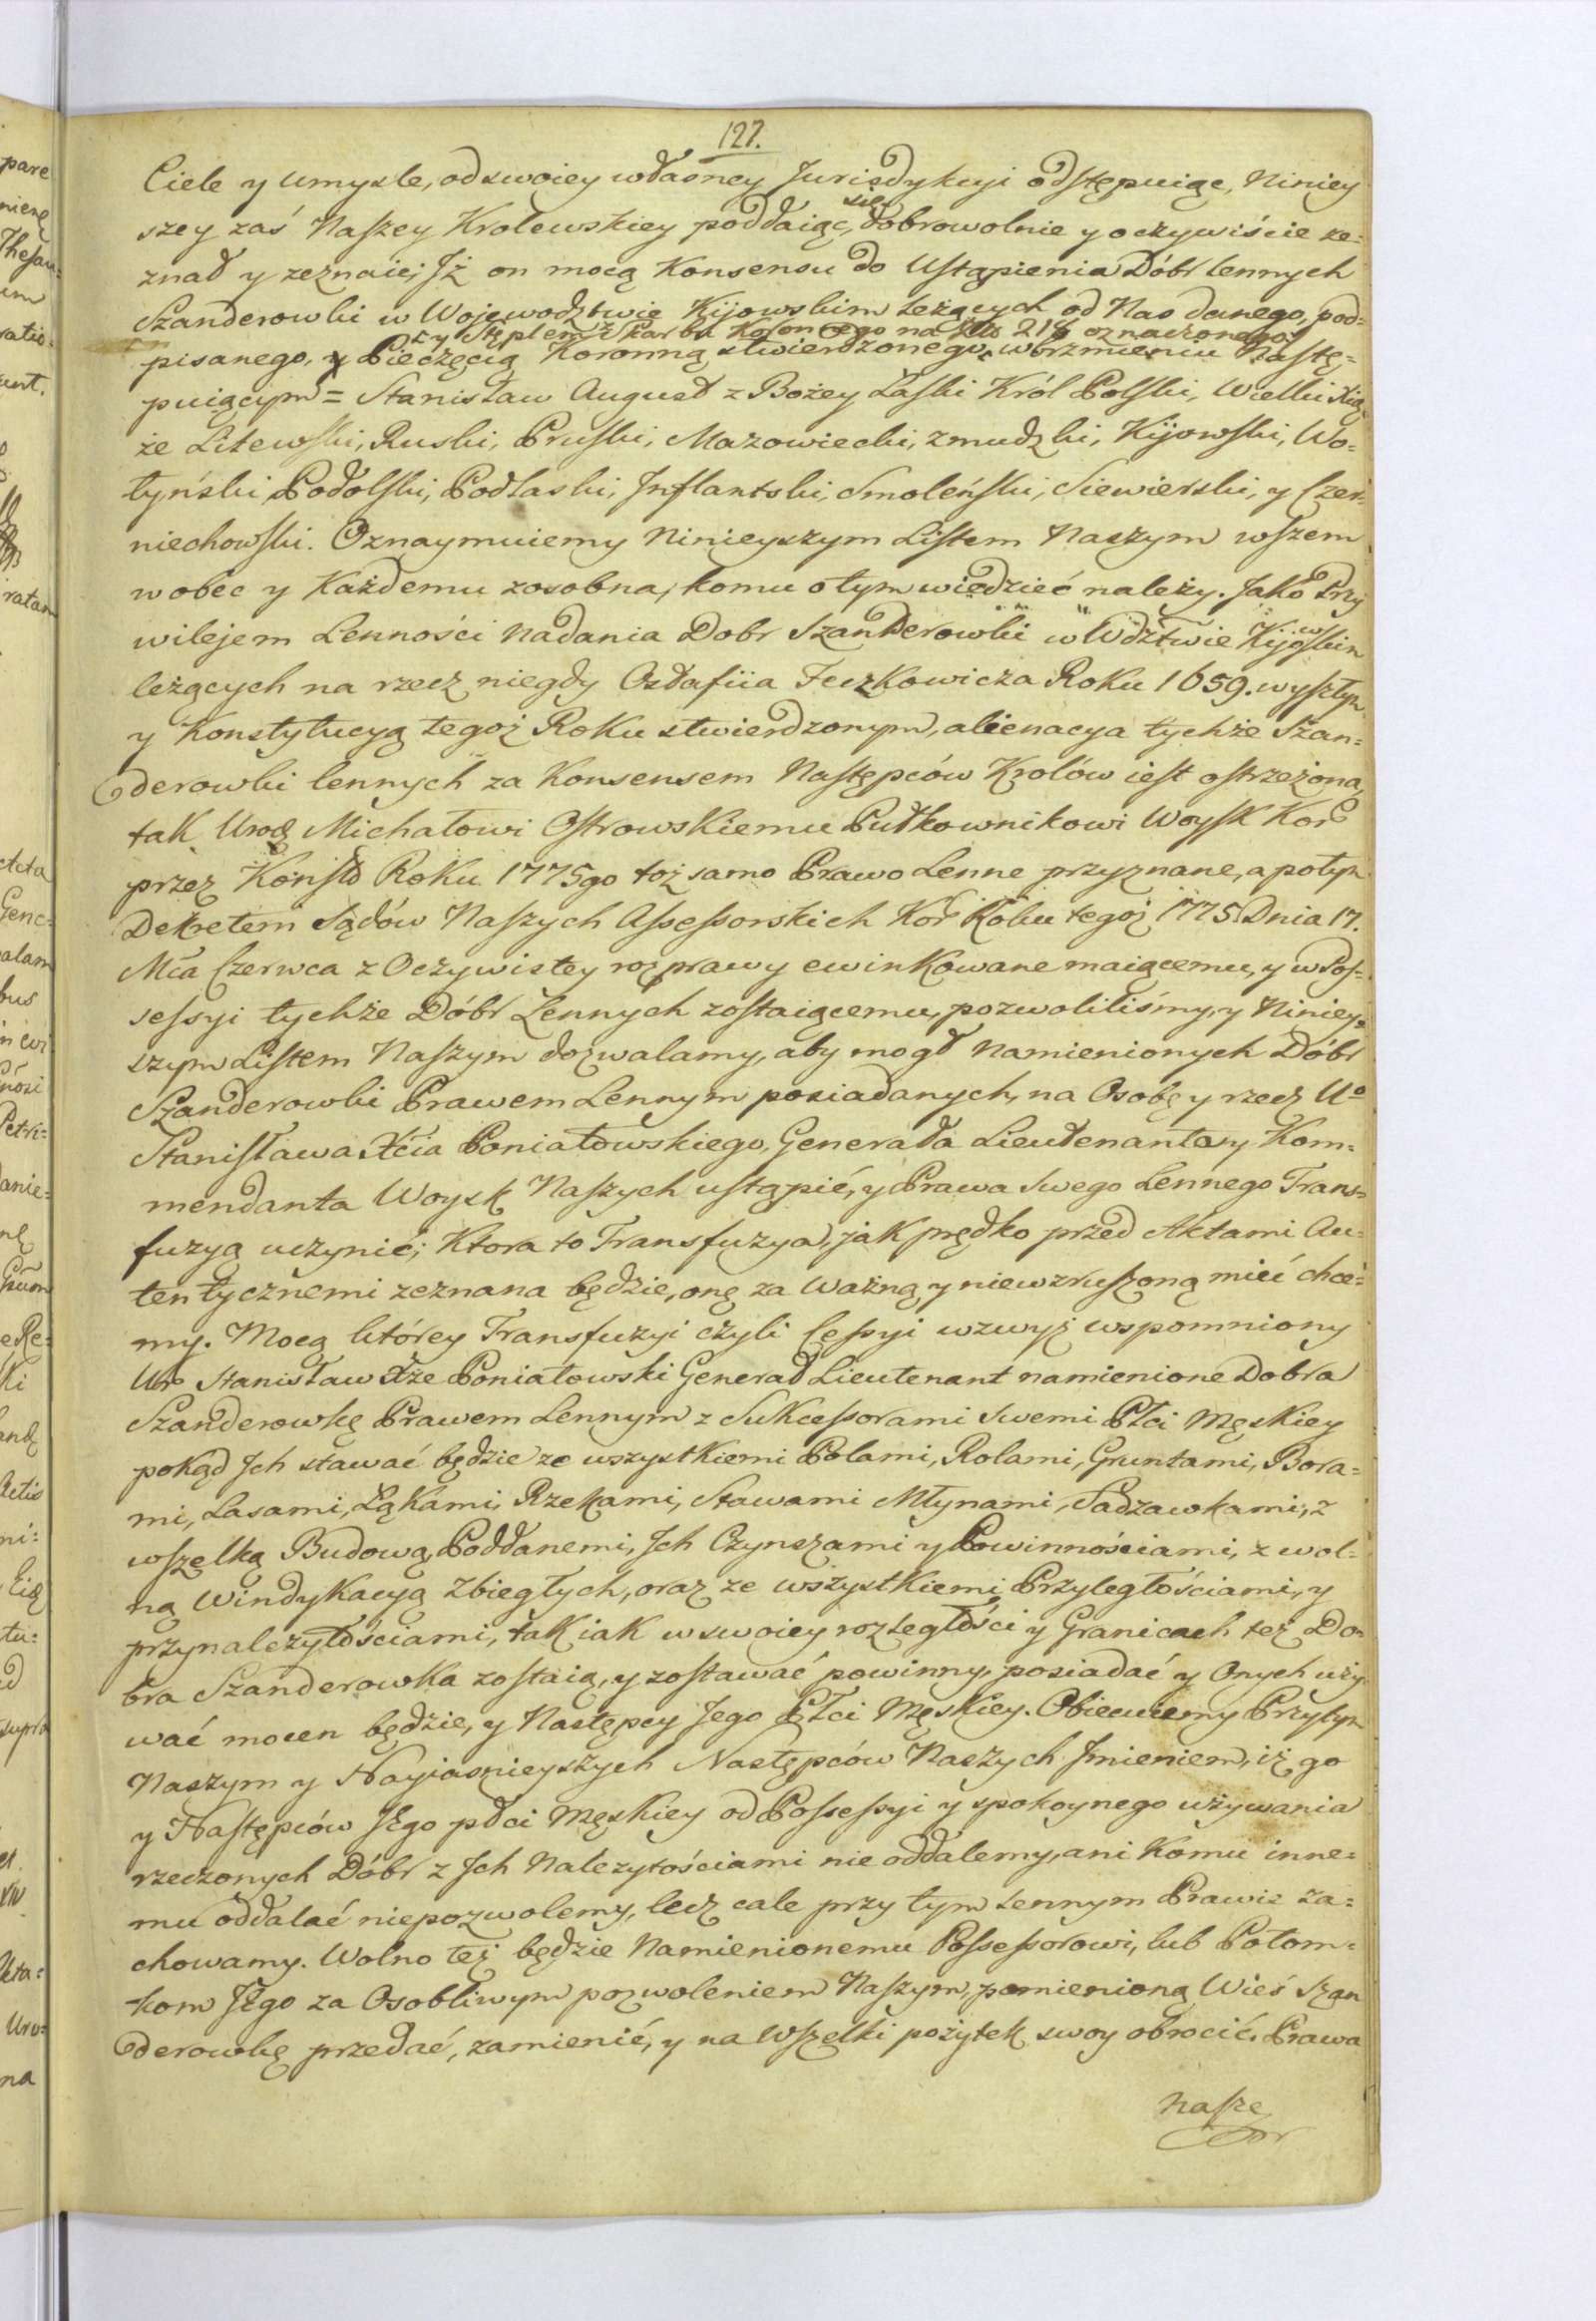 127.
Ciele y umysle, od swoiey własney Jurisdykcyi odstępuiąc, Niniey
szey zaś Naszey Krolewskiey poddaiąc, się dobrowolnie y oczywiście ze=
znał y zeznaie; Jż on mocą Konsensu do Ustąpienia Dóbr lennych
Szanderowki w Wojewodztwie Kijowskim leżących od Nas danego, pod=
czy Stęplem z Skarbu Koronnego na 218 oznaczonego
pisanego, y Pieczęcią Koronną stwierdzonego, w brzmieniu Nastę=
puiącym = Stanisław August z Bożey Łaski Król Polski, Wielki Xią
że Litewski, Ruski, Pruski, Mazowiecki, Zmudzki, Kijowski, Wo=
łyński Podolski, Podlaski, Jnflantski, Smoleński, Siewierski, y Czer=
niechowski. Oznaymuiemy Ninieyszym Listem Naszym wszem
wobec y Każdemu zosobna, komu o tym wiedzieć należy. Jako Przy
wilejem Lenności nadania Dobr Szanderowki w Wdztwie Kijowskim
leżących na rzecz niegdy Ostafiia Feczkowicza Roku 1659. wyszłym
y Konstytucyą tegoż Roku stwierdzonym, alienacya tychże Szan=
derowki lennych za Konsensem Następców Krolów iest ostrzeżona,
tak Urodz Michałowi Ostrowskiemu Pułkownikowi Woysk Kor
przez Konstt Roku 1775go toż samo Prawo Lenne przyznane, a potym
Dekretem Sądów Naszych Assessorskich Kor Roku tegoż 1775 Dnia 17.
Mca Czerwca z Oczywistey rozprawy ewinkowane maiącemu, y w Pos=
sessyi tychże Dóbr Lennych zostaiącemu, pozwoliliśmy, y Niniey=
szym Listem Naszym dozwalamy, aby mogł namienionych Dóbr
Szanderowki Prawem Lennym posiadanych, na Osobę y rzecz Uo
Stanisława Xcia Poniatowskiego, Generała Lieutenanta y Kom=
mendanta Woysk Naszych ustąpić, y Prawa Swego Lennego Trans=
fuzyą uczynić; Ktora to Transfuzya, jak prędko przed Aktami Au=
tentycznemi zeznana będzie, onę za ważną, y niewzruszoną mieć chce=
my. Mocą którey Transfuzyi czyli Cessyi wzwyż wspomniony
Ur Stanisław Xże Poniatowski Generał Lieutenant namienione Dobra
Szanderowkę Prawem Lennym z Sukcessorami Swemi Płci Męskiey
pokąd Jch stawać będzie ze wszystkiemi Polami, Rolami, Gruntami, Bora=
mi, Lasami, Łąkami, Rzekami, Stawami Młynami, Sadzawkami, z
wszelką Budową, Poddanemi, Jch Czynszami y Powinnościami, z wol=
ną Windykacyą Zbiegłych, oraz ze wszystkiemi Przyległościami, y
przynależytościami, tak iak w swoiey rozległości y Granicach też Do
bra Szanderowka zostaią, y zostawać powinny, posiadać y Onych uży
wać mocen będzie, y Następcy Jego Płci Męskiey. Obiecuiemy Przytym
Naszym y Nayiasnieyszych Następców Naszych Jmieniem, iż go
y Następców Jego płci Męskiey od Possessyi y spokoynego używania
rzeczonych Dóbr z Jch Należytościami nie oddalemy, ani Komu inne=
mu oddalać niepozwolemy, lecz cale przy tym Lennym Prawie za=
chowamy. Wolno też będzie Namienionemu Possessorowi, lub Potom=
kom Jego za Osobliwym pozwoleniem Naszym, pomienioną Wieś Szan
derowkę przedać, zamienić, y na Wszelki pożytek swoy obrocić. Prawa
Nasze